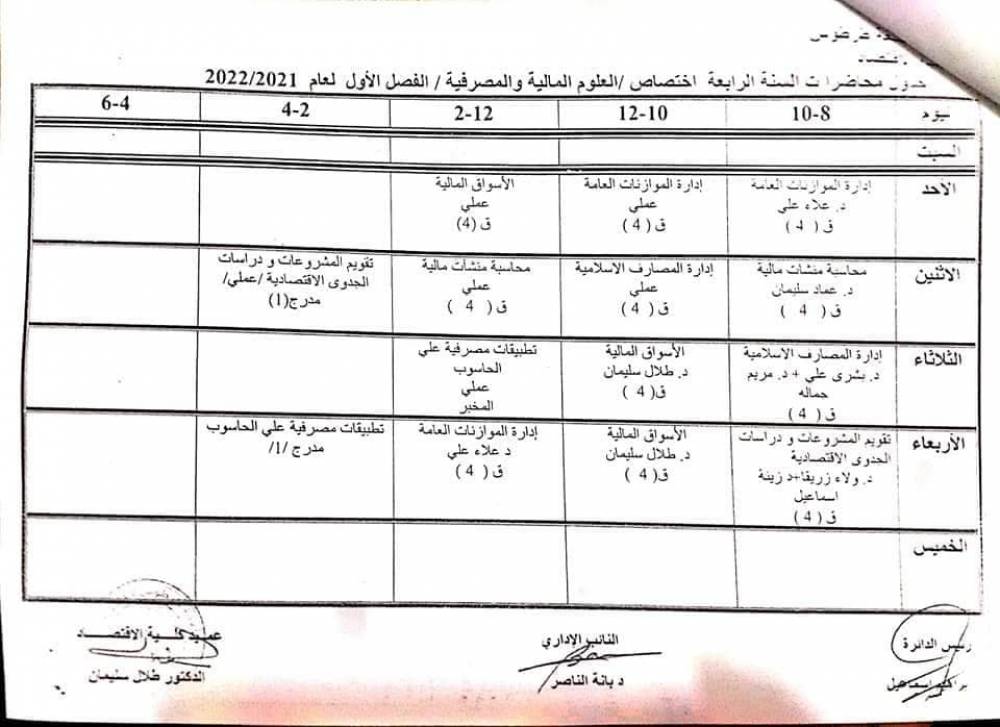 طرطوس
جدول محاضرات السنة الرابعة اختصاص /العلوم المالية والمصرفية / الفصل الأول لعام 2022/2021
يوم 10-8 12-10 2-12 4-2 6-4
السبت
الاحد
إدارة الموازنات العامة
د. علاء علي
ق ( 4 )
إدارة الموازنات العامة
عملي
ق ( 4 )
الأسواق المالية
عملي
ق (4)
الاثنين
محاسبة منشات مالية
د. عماد سليمان
ق ( 4 )
إدارة المصارف الاسلامية
عملي
ق ( 4 )
محاسبة منشات مالية
عملي
ق ( 4 )
تقويم المشروعات و دراسات
الجدوى الاقتصادية /عملي/
مدرج(1)
الثلاثاء
إدارة المصارف الاسلامية
د. بشرى علي + د. مريم
حماله
ق ( 4 )
الأسواق المالية
د. طلال سليمان
ق( 4 )
تطبيقات مصرفية علي
الحاسوب
عملي
المخبر
الأربعاء
تقويم المشروعات و دراسات
الجدوى الاقتصادية
د. ولاء زريقا+د زينة
اسماعيل
ق ( 4 )
الأسواق المالية
د. طلال سليمان
ق( 4 )
إدارة الموازنات العامة
د علاء علي
ق ( 4 )
تطبيقات مصرفية علي الحاسوب
مدرج /1/
الخميس
رئيس الدائرة
اسماعيل
النائب الإداري
د بانة الناصر
عميد كلية الاقتصاد
الدكتور طلال سليمان